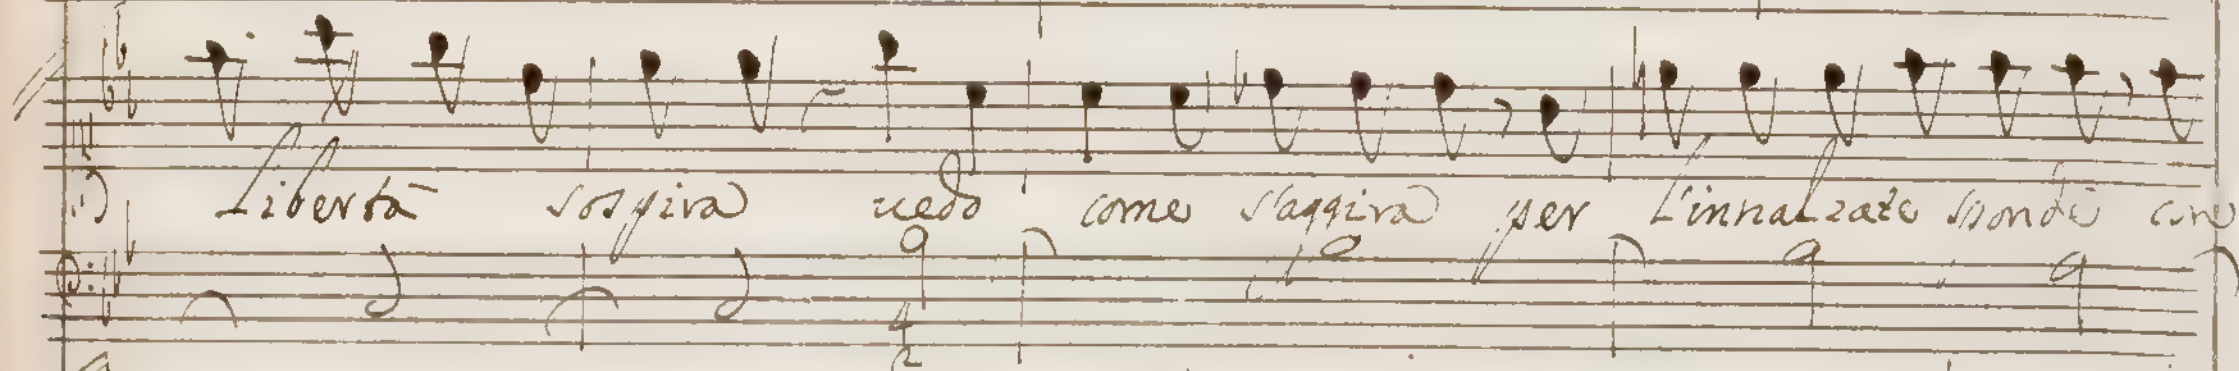 Libertà sospira uedo come s'aggira per L'innalzate sponde
4
2